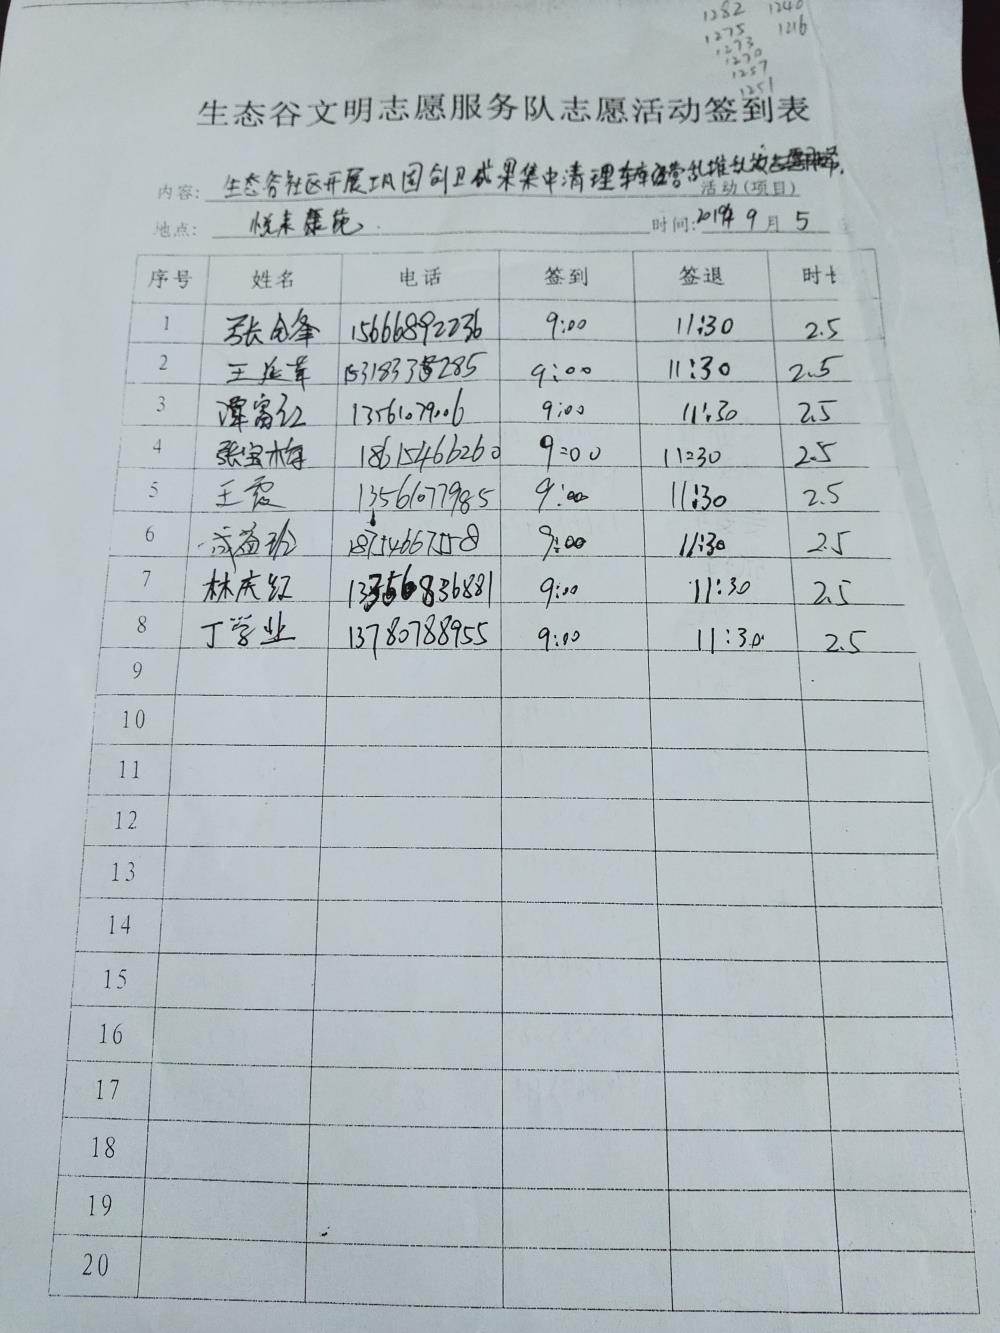 1282 1240
1275 1216
1273
1270
1257
1251
生态谷文明志愿服务队志愿活动签到表
内容: 生态谷社区开展巩固创卫成果集中清理车库经营乱堆乱 活动(项目)
地点: 悦来 苑 时间: 2019年 9 月 5
序号 姓名 电话 签到 签退 时
1 张 峰 15666892236 9:00 11:30 2.5
2 王 9:00 11:30 2.5
3 谭富红 1356107906 9:00 11:30 2.5
4 张宝梅 18615466260 9:00 11:30 2.5
5 王霞 13561077985 9:00 11:30 2.5
6 18754667558 9:00 11:30 2.5
7 林庆红 13356836881 9:00 11:30 2.5
8 丁学业 13780788955 9:00 11:30 2.5
9
10
11
12
13
14
15
16
17
18
19
20